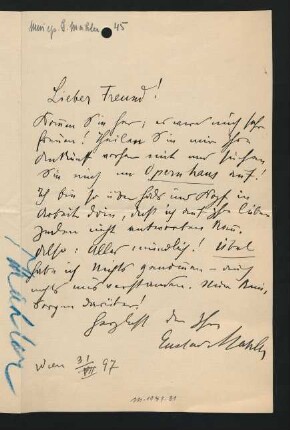 Lieber Freund!
Kommen Sie her, es wird mich sehr
freuen! Theilen Sie mir Ihre
Ankunft vorher mit und suchen
Sie mich im Opernhaus auf!
Ich bin so über Hals und Kopf in
Arbeit drin, daß ich auf Ihre lieben
Zeilen nicht antworten kann.
Also: Alles mündlich! Übel
habe ich Nichts genommen – auch
nichts missverstanden. Keine
Sorgen darüber!
Herzlichst der Ihre
Gustav Mahler
Wien 31/VII 97
Mahler